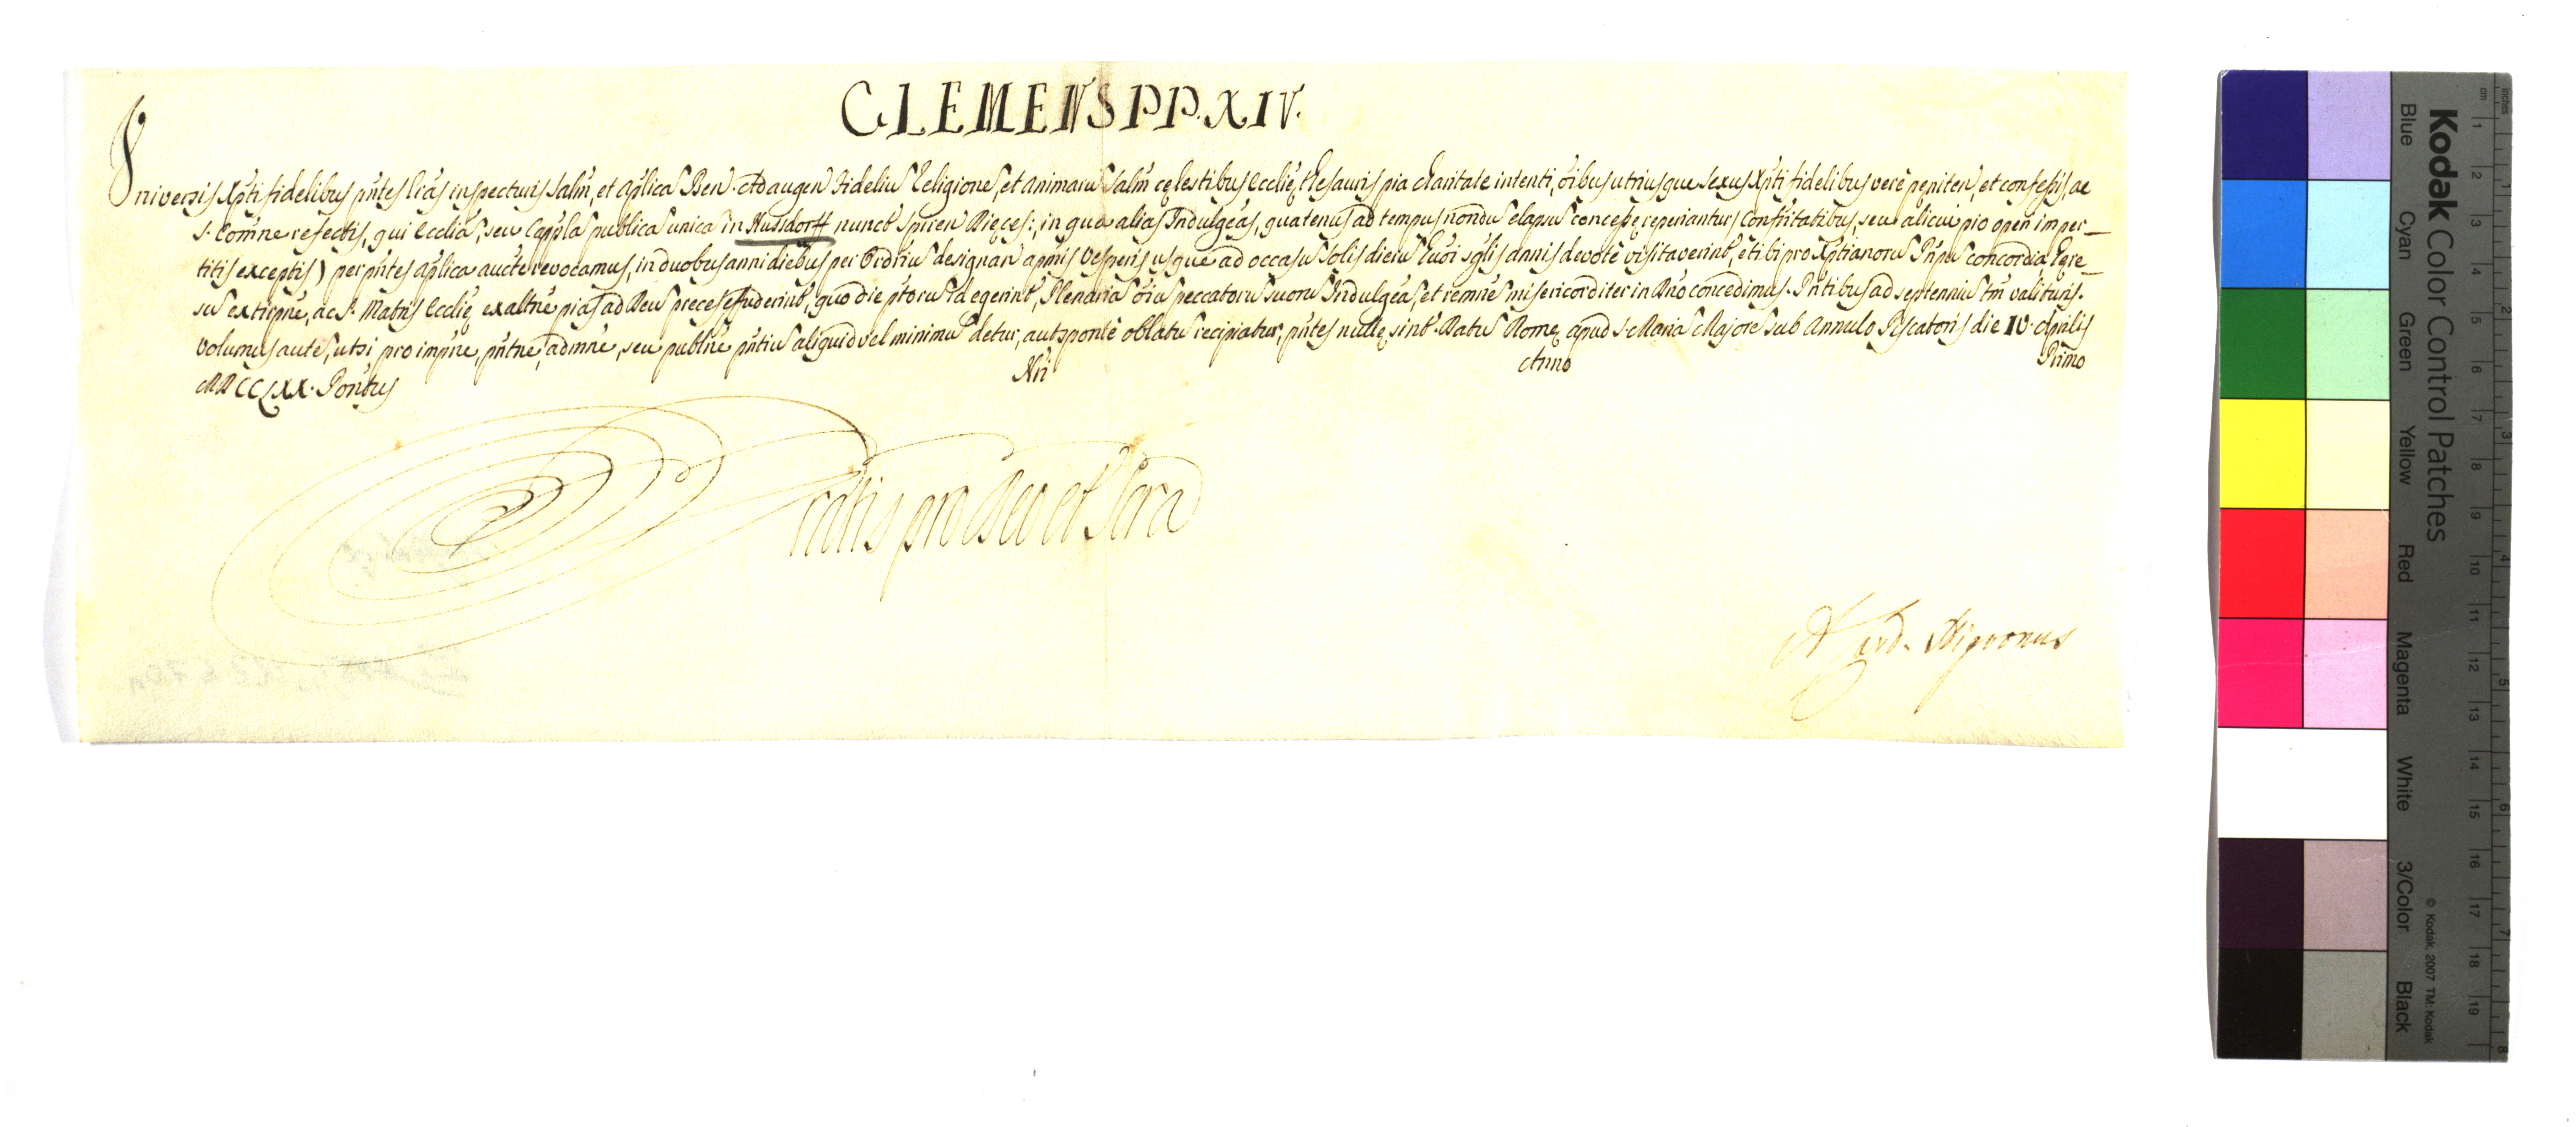 CLEMENS PP. XIV.
Universis Xpti fidelibus pntes lras inspecturis salm, et aplica Ben. Ad augen fideliu Religione, et animaru salm cęlestibus Ecclię thesauris pia charitate intenti, oibus utriusque sexus Xpti fidelibus verè pęniten, et confessis, ac
S. Comne refectis, qui Ecclia, seu Cappla publica unica in Hussdorff nunct Spiren Dięces:, in qua alias Indulgeas, quatenus ad tempus nondu elapsu concessę reperiantur (Confritatibus, seu alicui pio operi imper_
titis exceptis) per pntes aplica aucte revocamus, in duobus anni diebus per Ordriu designan a pmis Vesperis usque ad occasu Solis dieru hmoi sglis annis devotè visitaverint, et ibi pro Xptianoru Pnpu concordia, hęre_
su extirpne, ac S. Matris Ecclię exaltne pias ad Deu preces effuderint, quo die ptoru id egerint, Plenaria oiu peccatoru suoru Indulgea, et remne misericorditer in Dno concedimus. Pntibus ad septenniu tm valituris.
Volumus aute, ut si pro impne, pntne, admne, seu publne pntiu aliquid vel minimu detur, aut spontè oblatu recipiatur, pntes nullę sint. Datu Romę apud S. Maria Majore sub Annulo Piscatoris die IV. Aprilis
MDCCLXX. Pontus Nri Anno Primo
Gratis pro Deo et Scra
A Card. Nigronus
Kodak Color Control Patches
Blue Cyan Green Yellow Red Magenta White 3/Color Black
© Kodak, 2007 TM: Kodak
cm 1 2 3 4 5 6 7 8 9 10 11 12 13 14 15 16 17 18 19
inches 1 2 3 4 5 6 7 8